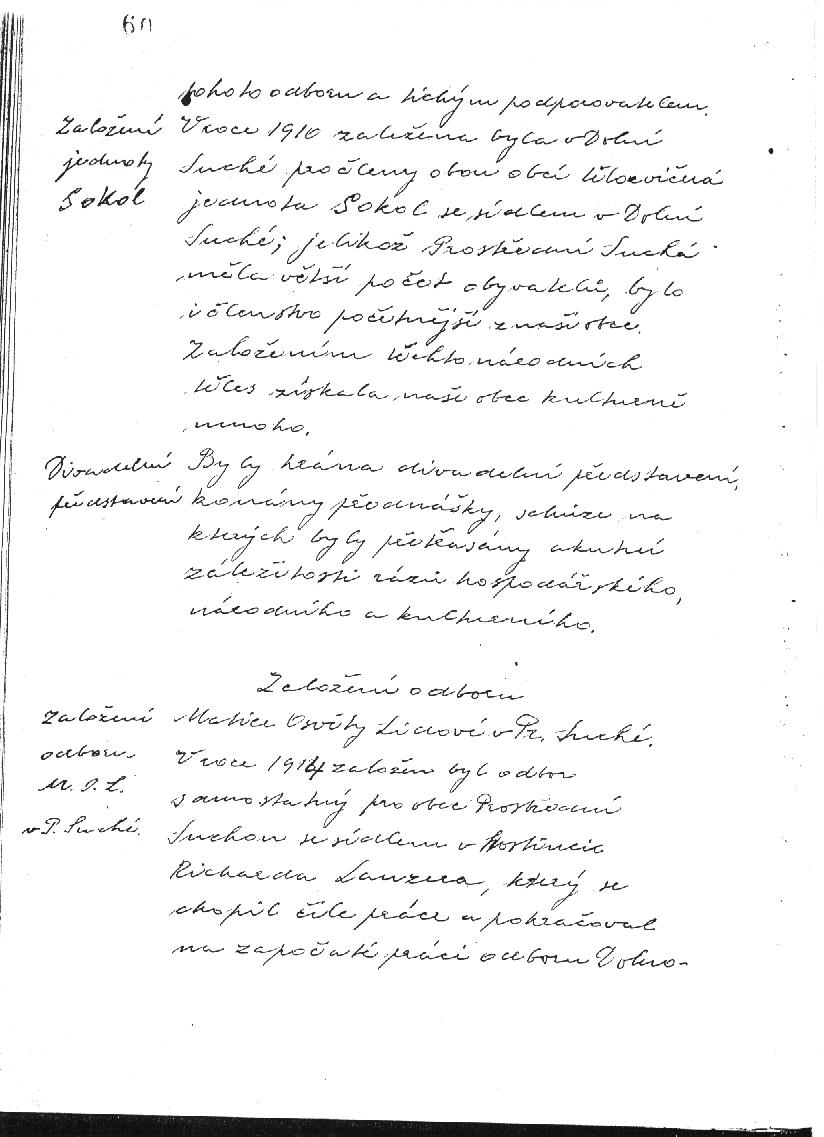 60
tohoto odboru a tichým podporovatelem.
Založení
jednoty
Sokol
V roce 1910 založena byla v Dolní
Suché pro členy obou obcí tělocvičná
jednota Sokol se sídlem v Dolní
Suché; jelikož Prostřední Suchá
měla větší počet obyvatelů, bylo
i členstvo početnější z naší obce.
Založením těchto národních
těles získala naše obec kulturně
mnoho.
Divadelní
představení
Byly hrána divadelní představení,
konány přednášky, schůze na
kterých byly přetřásány akutní
záležitosti rázu hospodářského,
národního a kulturního.
Založení odboru
Matice Osvěty Lidové v Pr. Suché.
Založení
odboru
M. O. L.
v P. Suché.
V roce 1914 založen byl odbor
samostatný pro obec Prostřední
Suchou se sídlem v Hostinci
Richarda Lanzera, který se
chopil čile práce a pokračoval
na započaté práci odboru Dolno-